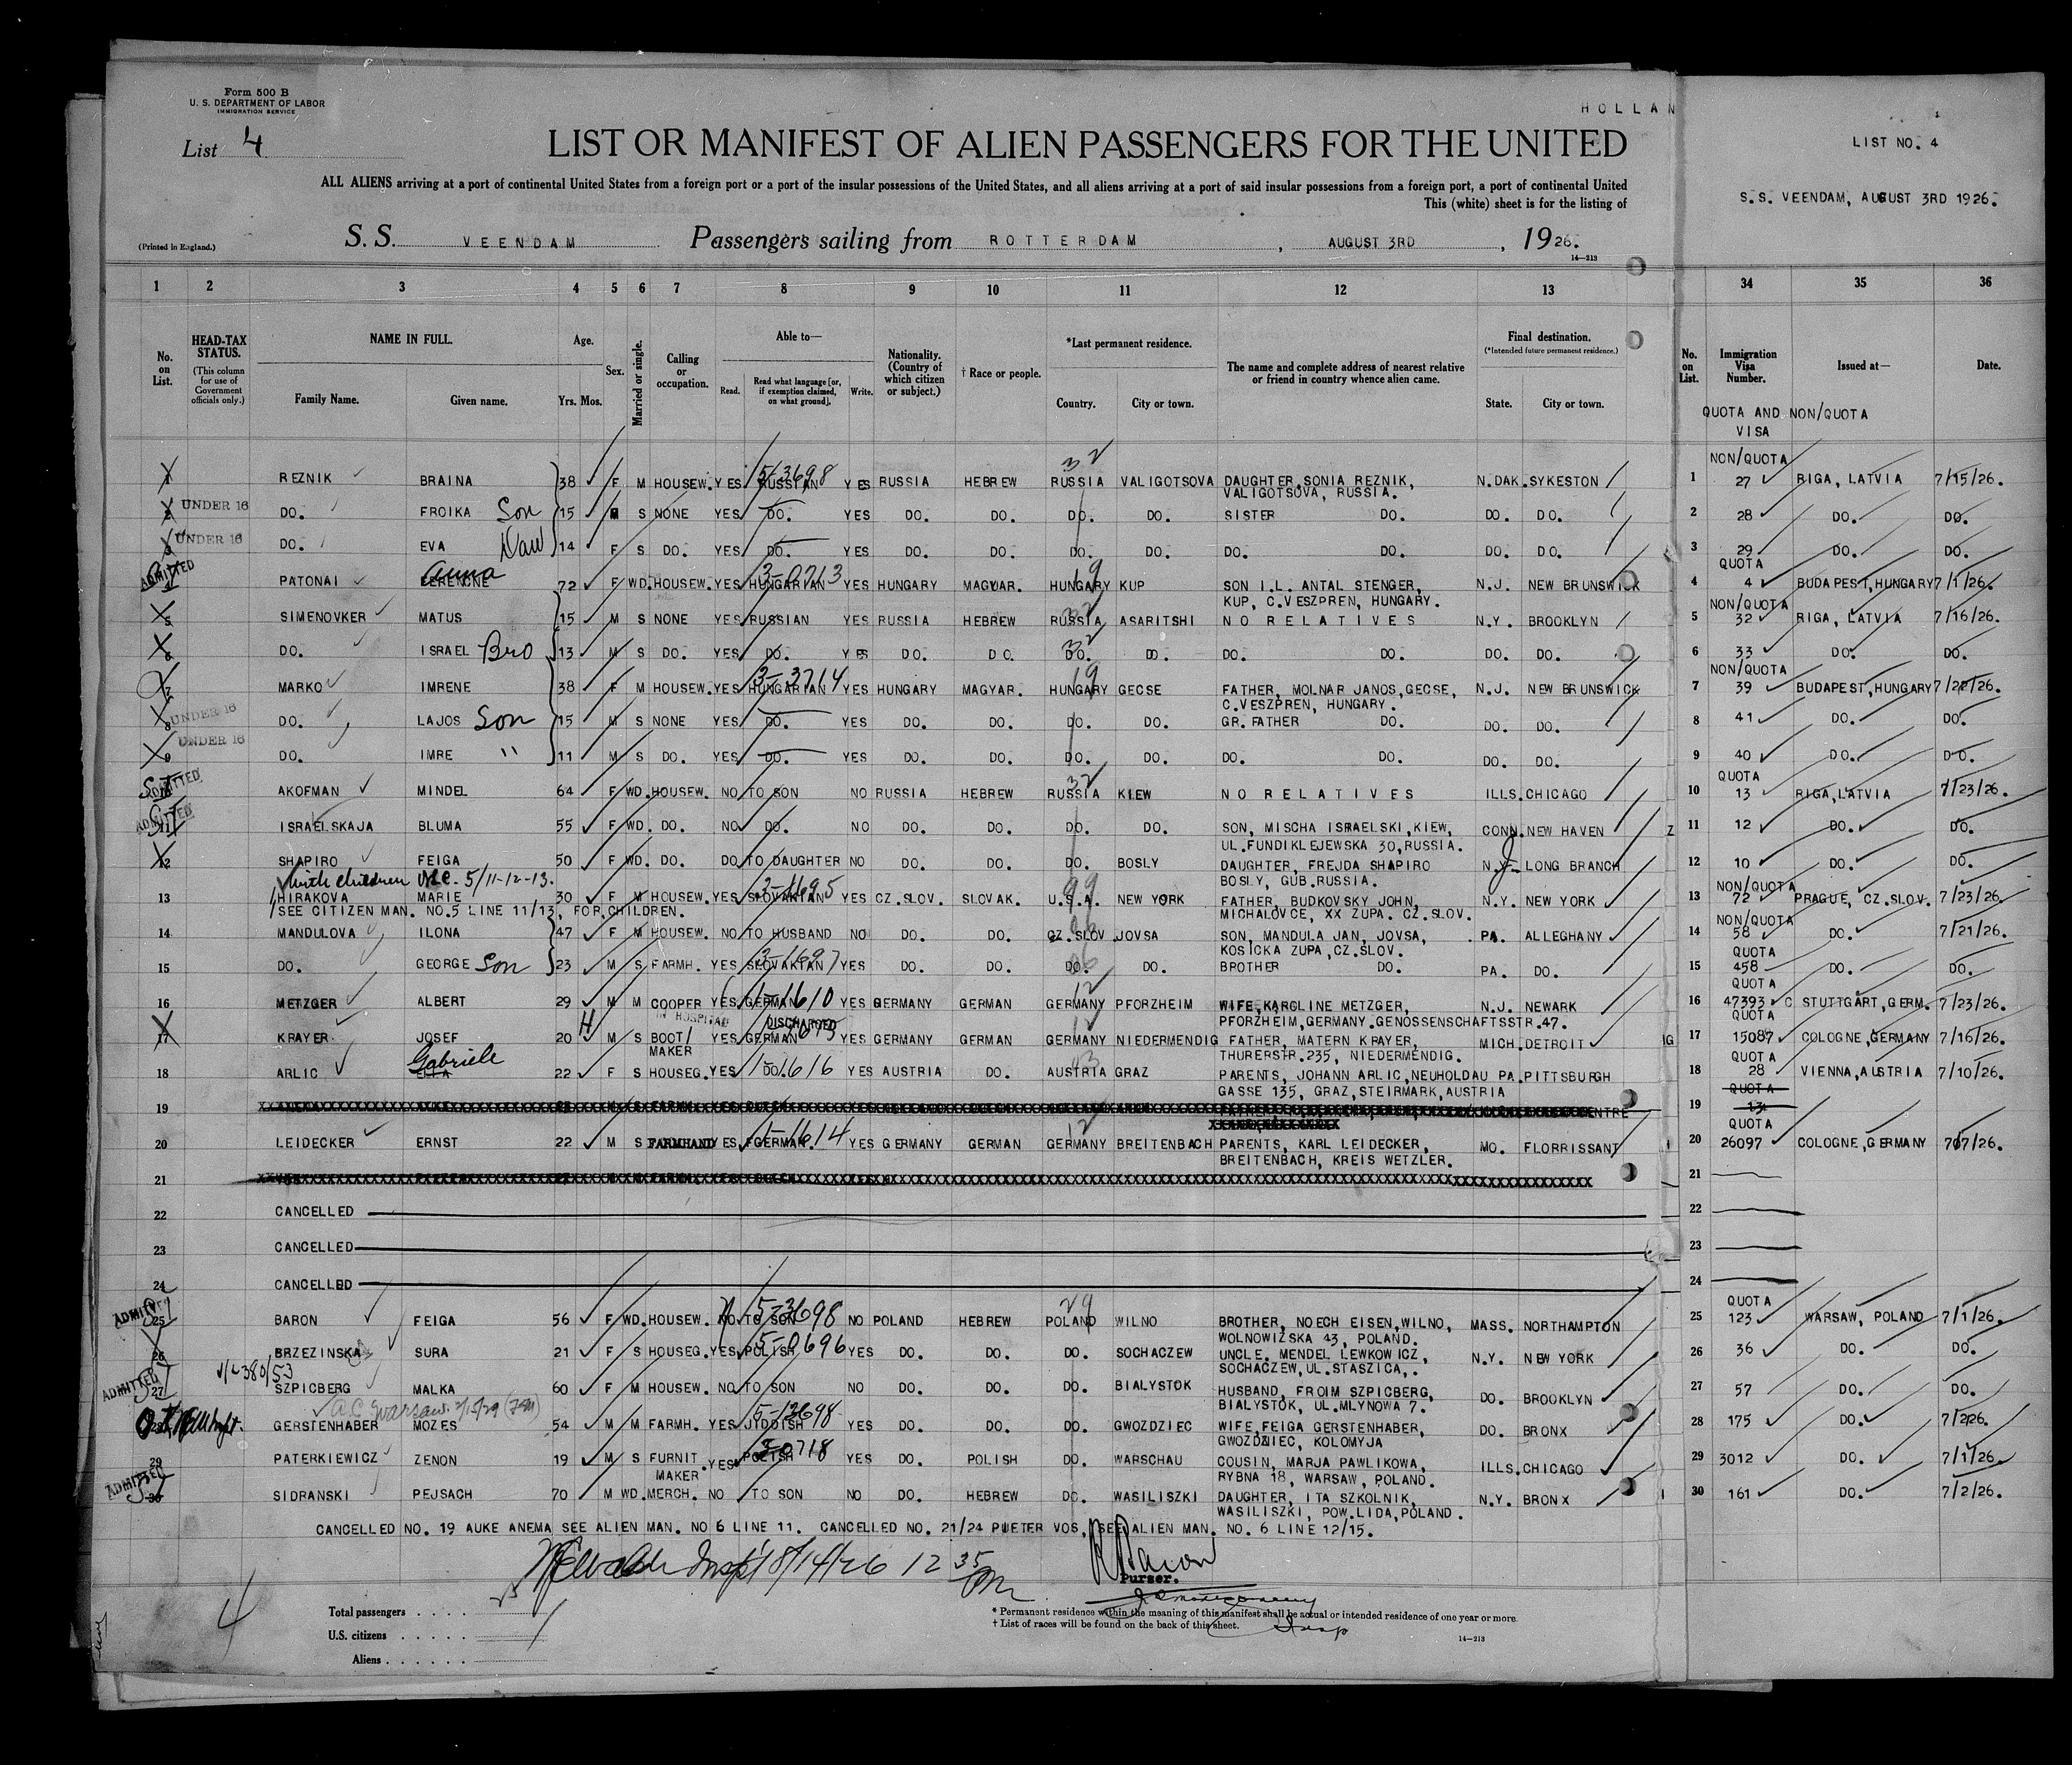 Form 500 B
U. S. DEPARTMENT OF LABOR
IMMIGRATION SERVICE
HOLLAN
List 4
LIST OR MANIFEST OF ALIEN PASSENGERS FOR THE UNITED
LIST NO. 4
ALL ALIENS arriving at a port of continental United States from a foreign port or a port of the insular possessions of the United States, and all aliens arriving at a port of said insular possessions from a foreign port, a port of continental United
This (white) sheet is for the listing of
S.S. VEENDAM, AUGUST 3RD 1926.
(Printed in England.) S. S. VEENDAM Passengers sailing from ROTTERDAM, AUGUST 3RD, 1926.
14—213
1 2 3 4 5 6 7 8 9 10 11 12 13 34 35 36
No. on List. HEAD-TAX STATUS. (This column for use of Government officials only.) NAME IN FULL. Family Name. Given name. Age. Yrs. Mos. Sex. Married or single. Calling or occupation. Able to— Read. Read what language [or, if exemption claimed, on what ground]. Write. Nationality. (Country of which citizen or subject.) † Race or people. *Last permanent residence. Country. City or town. The name and complete address of nearest relative or friend in country whence alien came. Final destination. (*Intended future permanent residence.) State. City or town. No. on List. Immigration Visa Number. Issued at— Date.
QUOTA AND NON/QUOTA
VISA
NON/QUOTA
1 REZNIK BRAINA 38 F M HOUSEW. YES 5-3698 RUSSIAN YES RUSSIA HEBREW 32 RUSSIA VALIGOTSOVA DAUGHTER, SONIA REZNIK, N.DAK. SYKESTON 1 27 RIGA, LATVIA 7/15/26.
VALIGOTSOVA, RUSSIA.
2 UNDER 16 DO. FROIKA Son 15 M S NONE YES DO. YES DO. DO. DO. DO. SISTER DO. DO. DO. 2 28 DO. DO.
3 UNDER 16 DO. EVA Dau 14 F S DO. YES DO. YES DO. DO. DO. DO. DO. DO. DO. DO. 3 29 DO. DO.
QUOTA
4 ADMITTED PATONAI FERENCNE Anna 72 F WD. HOUSEW. YES 3-0713 HUNGARIAN YES HUNGARY MAGYAR. 19 HUNGARY KUP SON I.L. ANTAL STENGER, N.J. NEW BRUNSWICK 4 4 BUDAPEST, HUNGARY 7/1/26.
KUP, C.VESZPREN, HUNGARY.
NON/QUOTA
5 SIMENOVKER MATUS 15 M S NONE YES RUSSIAN YES RUSSIA HEBREW 32 RUSSIA ASARITSHI NO RELATIVES N.Y. BROOKLYN 5 32 RIGA, LATVIA 7/16/26.
6 DO. ISRAEL Bro 13 M S DO. YES DO. YES DO. DO. 32 DO. DO. DO. DO. DO. DO. 6 33 DO. DO.
NON/QUOTA
7 MARKO IMRENE 38 F M HOUSEW. YES 3-3714 HUNGARIAN YES HUNGARY MAGYAR. 19 HUNGARY GECSE FATHER, MOLNAR JANOS, GECSE, N.J. NEW BRUNSWICK 7 39 BUDAPEST, HUNGARY 7/22/26.
C.VESZPREN, HUNGARY.
8 UNDER 16 DO. LAJOS Son 15 M S NONE YES DO. YES DO. DO. DO. DO. GR. FATHER DO. DO. DO. 8 41 DO. DO.
9 UNDER 16 DO. IMRE " 11 M S DO. YES DO. YES DO. DO. DO. DO. DO. DO. DO. DO. 9 40 DO. DO.
QUOTA
10 ADMITTED AKOFMAN MINDEL 64 F WD. HOUSEW. NO TO SON NO RUSSIA HEBREW 32 RUSSIA KIEW NO RELATIVES ILLS. CHICAGO 10 13 RIGA, LATVIA 7/23/26.
11 ADMITTED ISRAELSKAJA BLUMA 55 F WD. DO. NO DO. NO DO. DO. DO. DO. SON, MISCHA ISRAELSKI, KIEW, CONN. NEW HAVEN 11 12 DO. DO.
UL.FUNDIKLEJEWSKA 30, RUSSIA.
12 SHAPIRO FEIGA 50 F WD. DO. DO TO DAUGHTER NO DO. DO. DO. BOSLY DAUGHTER, FREJDA SHAPIRO N.Y. J LONG BRANCH 12 10 DO. DO.
BOSLY, GUB.RUSSIA.
with children 5/11-12-13. NON/QUOTA
13 HIRAKOVA MARIE 30 F M HOUSEW. YES 3-1695 SLOVAKIAN YES CZ.SLOV. SLOVAK. 99 U.S.A. NEW YORK FATHER, BUDKOVSKY JOHN, N.Y. NEW YORK 13 72 PRAGUE, CZ.SLOV. 7/23/26.
SEE CITIZEN MAN. NO.5 LINE 11/13, FOR CHILDREN. MICHALOVCE, XX ZUPA. CZ.SLOV.
NON/QUOTA
14 MANDULOVA ILONA 47 F M HOUSEW. NO TO HUSBAND NO DO. DO. CZ.SLOV JOVSA SON, MANDULA JAN, JOVSA, PA. ALLEGHANY 14 58 DO. 7/21/26.
KOSICKA ZUPA, CZ.SLOV.
QUOTA
15 DO. GEORGE Son 23 M S FARMH. YES 3-1697 SLOVAKIAN YES DO. DO. DO. DO. BROTHER DO. PA. DO. 15 458 DO. DO.
QUOTA
16 METZGER ALBERT 29 M M COOPER YES 1-1610 GERMAN YES GERMANY GERMAN 12 GERMANY PFORZHEIM WIFE, KAROLINE METZGER, N.J. NEWARK 16 47393 C STUTTGART, GERM. 7/23/26.
PFORZHEIM, GERMANY. GENOSSENSCHAFTSSTR.47.
IN HOSPITAL DISCHARGED QUOTA
17 KRAYER JOSEF 20 H M S BOOT/ YES GERMAN YES GERMANY GERMAN 12 GERMANY NIEDERMENDIG FATHER, MATERN KRAYER, MICH. DETROIT 17 15087 COLOGNE, GERMANY 7/16/26.
MAKER THURERSTR.235, NIEDERMENDIG.
QUOTA
18 ARLIC Gabriele 22 F S HOUSEG. YES 1-1616 DO. YES AUSTRIA DO. 03 AUSTRIA GRAZ PARENTS, JOHANN ARLIC, NEUHOLDAU PA. PITTSBURGH 18 28 VIENNA, AUSTRIA 7/10/26.
GASSE 135, GRAZ, STEIRMARK, AUSTRIA
QUOTA
19 19 13
QUOTA
20 LEIDECKER ERNST 22 M S FARMHAND YES 1-1614 GERMAN. YES GERMANY GERMAN 12 GERMANY BREITENBACH PARENTS, KARL LEIDECKER, MO. FLORRISSANT 20 26097 COLOGNE, GERMANY 7/7/26.
BREITENBACH, KREIS WETZLER.
21 21
22 CANCELLED 22
23 CANCELLED 23
24 CANCELLED 24
QUOTA
25 ADMITTED BARON FEIGA 56 F WD. HOUSEW. NO 5-3698 TO SON NO POLAND HEBREW 29 POLAND WILNO BROTHER, NOECH EISEN, WILNO, MASS. NORTHAMPTON 25 123 WARSAW, POLAND 7/1/26.
WOLNOWIZSKA 43, POLAND.
26 BRZEZINSKA SURA 21 F S HOUSEG. YES 5-0696 POLISH YES DO. DO. DO. SOCHACZEW UNCLE, MENDEL LEWKOWICZ, N.Y. NEW YORK 26 36 DO. DO.
SOCHACZEW, UL.STASZICA,.
27 ADMITTED SZPICBERG MALKA 60 F M HOUSEW. NO TO SON NO DO. DO. DO. BIALYSTOK HUSBAND, FROIM SZPICBERG, DO. BROOKLYN 27 57 DO. DO.
BIALYSTOK, UL.MLYNOWA 7.
28 GERSTENHABER MOZES 54 M M FARMH. YES JIDDISH YES DO. DO. DO. GWOZDZIEC WIFE, FEIGA GERSTENHABER, DO. BRONX 28 175 DO. 7/2/26.
GWOZDZIEC, KOLOMYJA
29 PATERKIEWICZ ZENON 19 M S FURNIT. YES POLISH YES DO. POLISH DO. WARSCHAU COUSIN, MARJA PAWLIKOWA, ILLS. CHICAGO 29 3012 DO. 7/1/26.
MAKER RYBNA 18, WARSAW, POLAND.
30 ADMITTED SIDRANSKI PEJSACH 70 M WD. MERCH. NO TO SON NO DO. HEBREW DO. WASILISZKI DAUGHTER, ITA SZKOLNIK, N.Y. BRONX 30 161 DO. 7/2/26.
WASILISZKI, POW.LIDA, POLAND.
CANCELLED NO. 19 AUKE ANEMA SEE ALIEN MAN. NO 6 LINE 11. CANCELLED NO. 21/24 PIETER VOS, SEE ALIEN MAN. NO. 6 LINE 12/15.
8/14/26 12 35 PM
Purser.
4
Total passengers
U.S. citizens
Aliens
* Permanent residence within the meaning of this manifest shall be actual or intended residence of one year or more.
† List of races will be found on the back of this sheet.
14—213